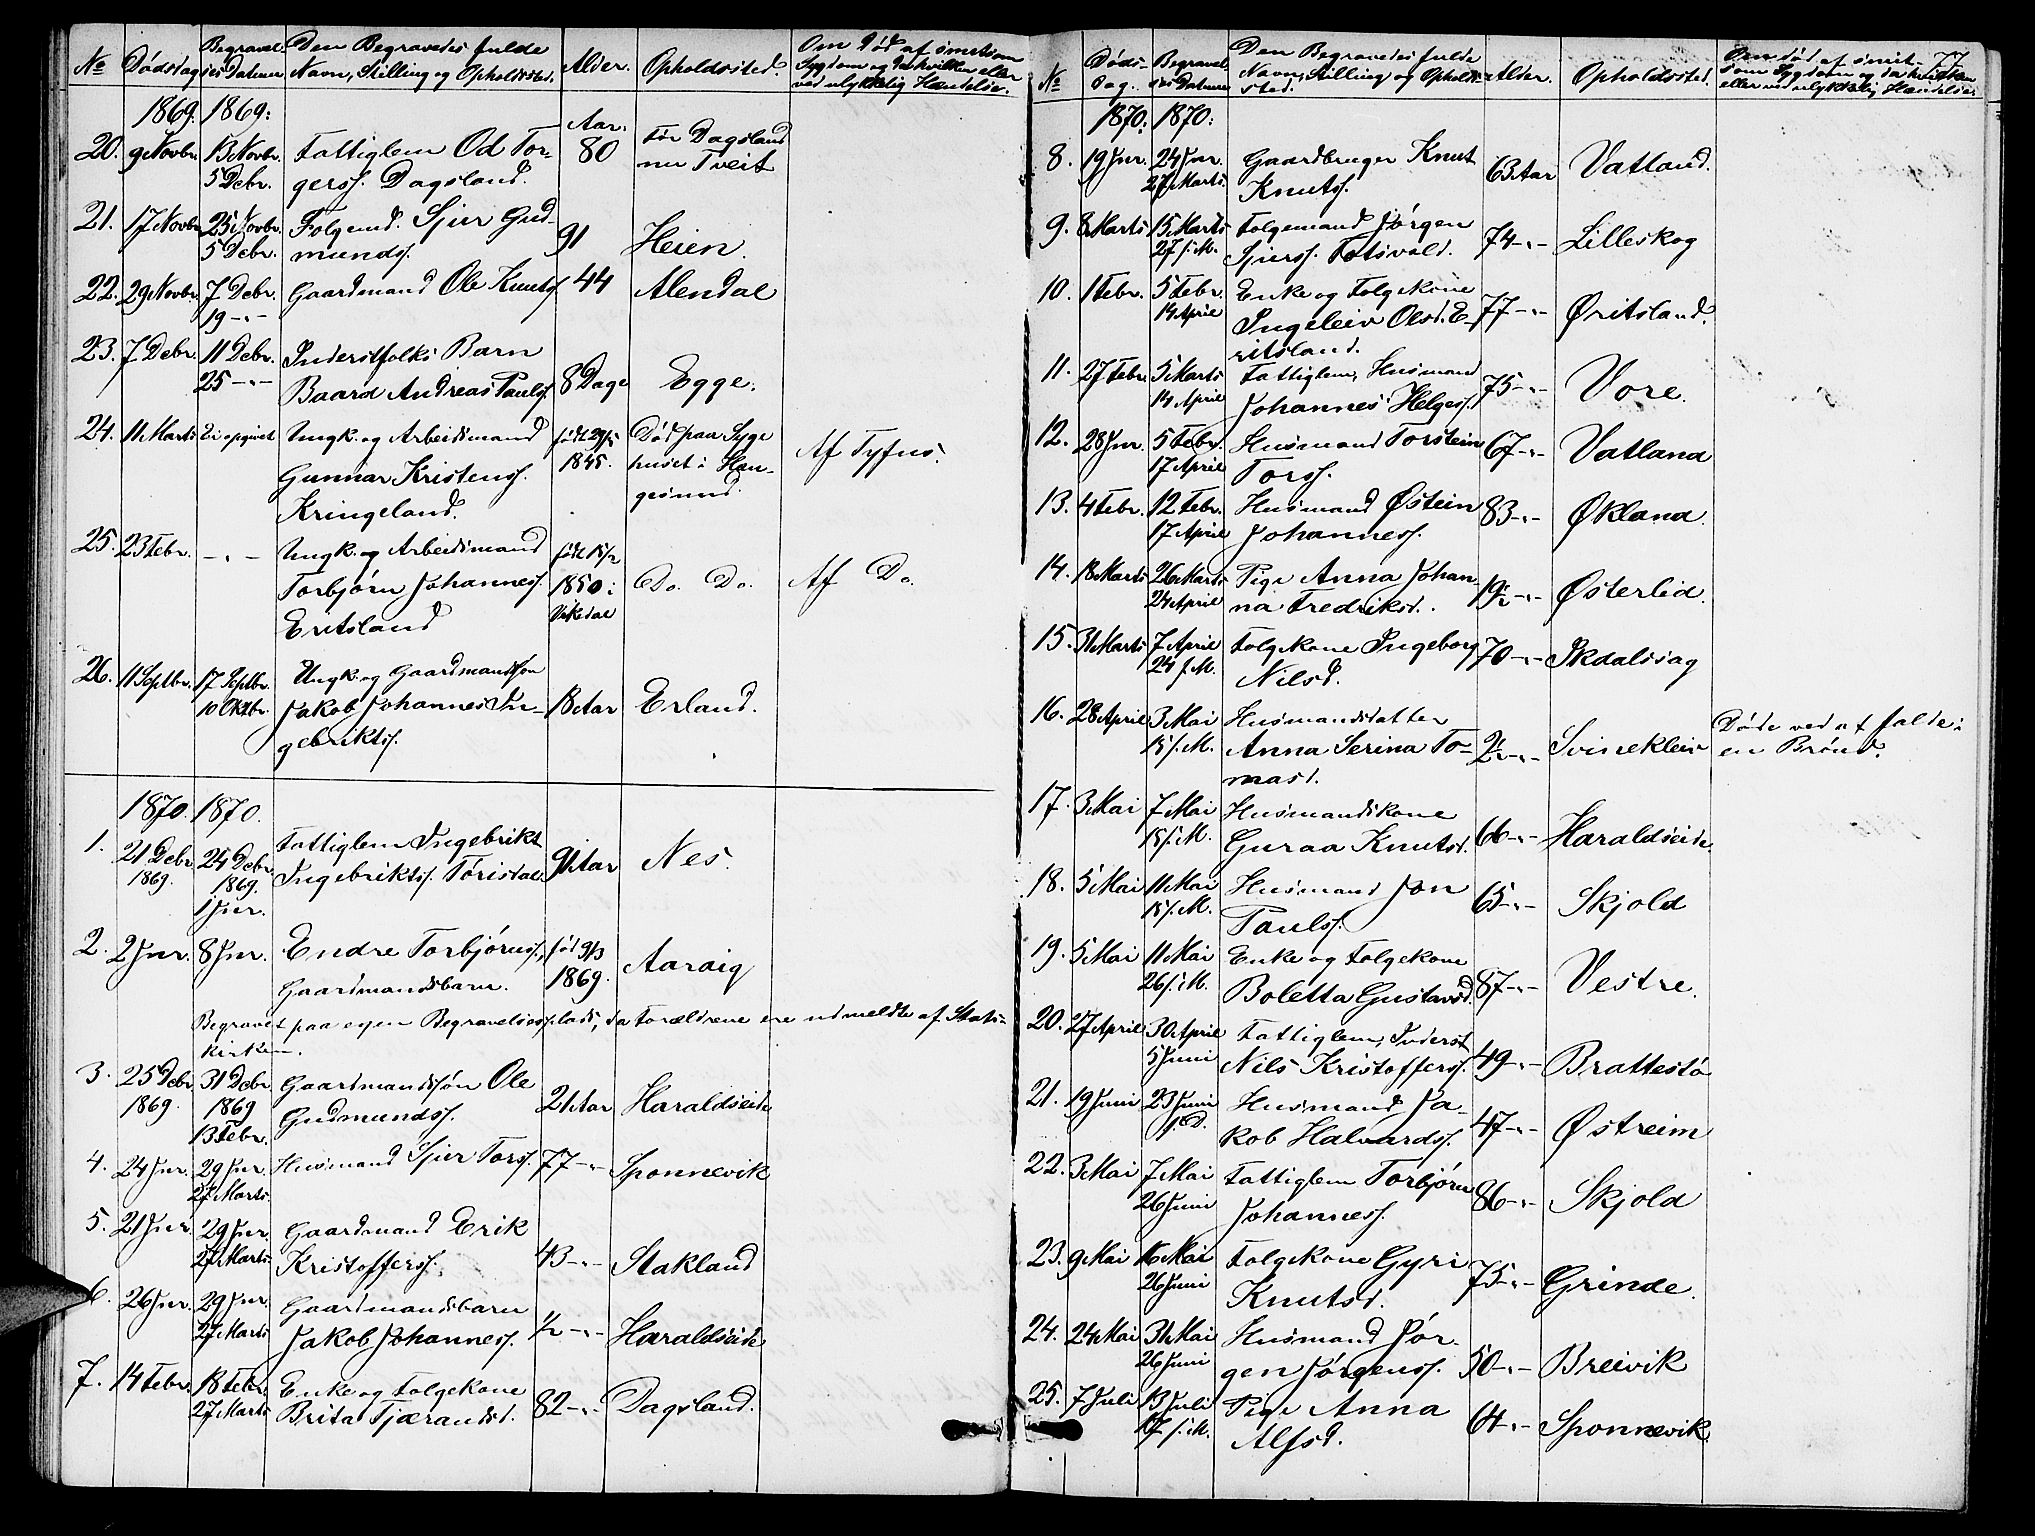 No Dødsdag Begravel-sesDatum Den Begravedes fulde Navn, Stilling og Opholdssted. Alder. Opholdssted. Om Død af smitsom Sygdom og da hvilken eller ved ulykkelig Hændelse.
1869. 1869:
20. 9 Novbr. 13 Novbr. 5 Debr. Fattiglem Od Tor-
gerss. Dagsland. Aar. 80 Før Dagsland nu Tveit
21. 17 Novbr. 25 Novbr. 5 Debr. Folgemd. Sjur Gud-
munds. 91 Heien.
22. 29 Novbr. 7 Debr. 19 -"- Gaardmand Ole Knuts. 44 Alendal
23. 7 Debr. 11 Debr. 25 -"- Inderstfolks Barn
Baard Andreas Pauls. 8 Dage Egge.
24. 11 Marts Ei opgivet Ungk. og Arbeidsmand
Gunnar Kristens.
Kringeland. født 1845. Død paa Syge
huset i Hau-
gesund. Af Tyfus.
25. 23 Febr. -"- Ungk. og Arbeidsmand
Torbjørn Johanness.
Eritsland født 15/2 1850: Vikedal Do. Do. Af Do.
26. 11 Septbr. 17 Septbr. 10 Oktbr. Ungk. og Gaardmandssøn
Jakob Johannes In-
gebrikts. 18 Aar Erland.
1870. 1870.
1. 21 Debr. 1869. 24 Debr. 1869. 1 Jnr. Fattiglem Ingebrikt
Ingebrikts. Tøristad. 91 Aar Nes.
2. 2 Jnr. 8 Jnr. Endre Torbjørns.,
Gaardmandsbarn. fød 9/3 1869. Aaraig
Begravet paa egen Begravelsesplads, da Forældrene ere udmeldte af Stats-
kirken.
3. 25 Debr. 1869. 31 Debr. 1869 13 Febr. Gaardmandssøn Ole
Gudmunds. 21 Aar Haraldseide
4. 24 Jnr. 29 Jnr. 27 Marts. Husmand Sjur Torss. 77 -"- Sponnevik
5. 21 Jnr. 29 Jnr. 27 Marts. Gaardmand Erik
Kristoffers. 43 -"- Stakland
6. 26 Jnr. 29 Jnr. 27 Marts Gaardmandsbarn
Jakob Johanness. 1/2 -"- Haraldseide
7. 14 Febr. 18 Febr. 27 Marts Enke og Folgekone
Brita Tjærandsd. 82 -"- Dagsland.
77
No Døds-dag. Begravel-sesDatum Den Begravedes fulde Navn, Stilling og Opholds-sted. Alder. Opholdssted. Om død af smit-som Sygdom og da hvilken eller ved ulykkelig Hændelse.
1870: 1870:
8. 19 Jnr. 24 Jnr. 27 Marts. Gaardbruger Knut
Knuts. 63 Aar Vatland.
9. 8 Marts 15 Marts 27 s. M. Folgemand Jørgen
Sjurss. Fotsvold. 74 -"- Lilleskog
10. 1 Febr. 5 Febr. 14 April Enke og Folgekone
Ingeleiv Olsd. E-
ritsland. 77 -"- Øritsland.
11. 27 Febr. 5 Marts 14 April Fattiglem, Husmand
Johannes Helgess. 75 -"- Vore.
12. 28 Jnr. 5 Febr. 17 April Husmand Torstein
Torss. 67 -"- Vatland
13. 4 Febr. 12 Febr. 17 April Husmand Østein
Johanness. 83 -"- Økland.
14. 18 Marts 26 Marts 24 April Pige Anna Johan-
na Fredriksd. 19 1/2 -"- Østerlid.
15. 31 Marts 7 April 24 s. M. Folgekone Ingeborg
Nilsd. 70 -"- Skdalssag
16. 28 April 3 Mai 15 s. M. Husmandsdatter
Anna Serina To-
masd. 2 1/2 -"- Svinekleiv Døde ved at falde i
en Brønd.
17. 3 Mai 7 Mai 15 s. M. Husmandskone
Guraa Knutsd. 66 -"- Haraldseide.
18. 5 Mai 11 Mai 15 s. M. Husmand Jon
Pauls. 65 -"- Skjold
19. 5 Mai 11 Mai 26 s. M. Enke og Folgekone
Boletta Gustavsd. 87 -"- Vestre.
20. 27 April 30 April 5 Juni Fattiglem, Inderst
Nils Kristoffers. 49 -"- Brattestø
21. 19 Juni 23 Juni s. D. Husmand Ja-
kob Halvards. 47 -"- Østreim
22. 3 Mai 7 Mai 26 Juni Fattiglem Torbjørn
Johanness. 86 -"- Skjold
23. 9 Mai 16 Mai 26 Juni Folgekone Gyri
Knutsd. 75 -"- Grinde.
24. 24 Mai 31 Mai 26 Juni Husmand Jør-
gen Jørgenss. 50 -"- Breivik
25. 7 Juli 13 Juli 17 s. M. Pige Anna
Alfsd. 64 -"- Sponnevik.